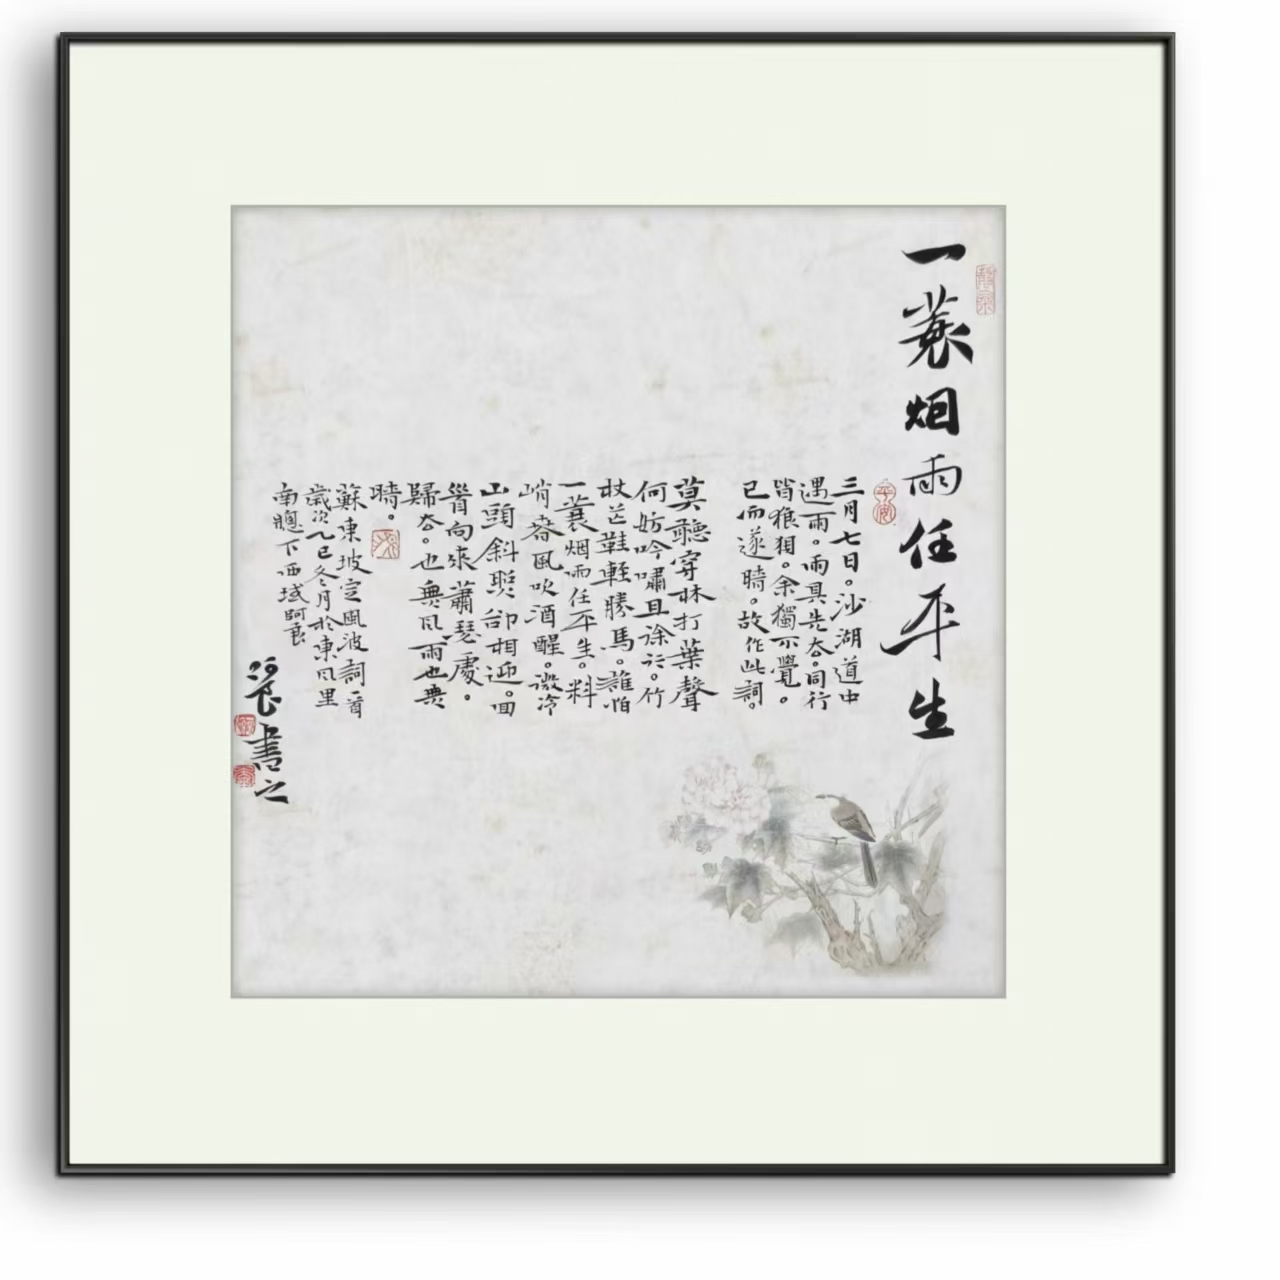 一蓑烟雨任平生
三月七日。沙湖道中
遇雨。雨具先去。同行
皆狼狽。余獨不覺。
已而遂晴。故作此詞。
莫聽穿林打葉聲
何妨吟嘯且徐行。竹
杖芒鞋輕勝馬。誰怕
一蓑烟雨任平生。料
峭春風吹酒醒。微冷
山頭斜照卻相迎。回
首向來蕭瑟處。
歸去。也無風雨也無
晴。
蘇東坡定風波詞一首
歲次乙巳冬月於東風里
南牕下西域阿良
阿良書之
平安